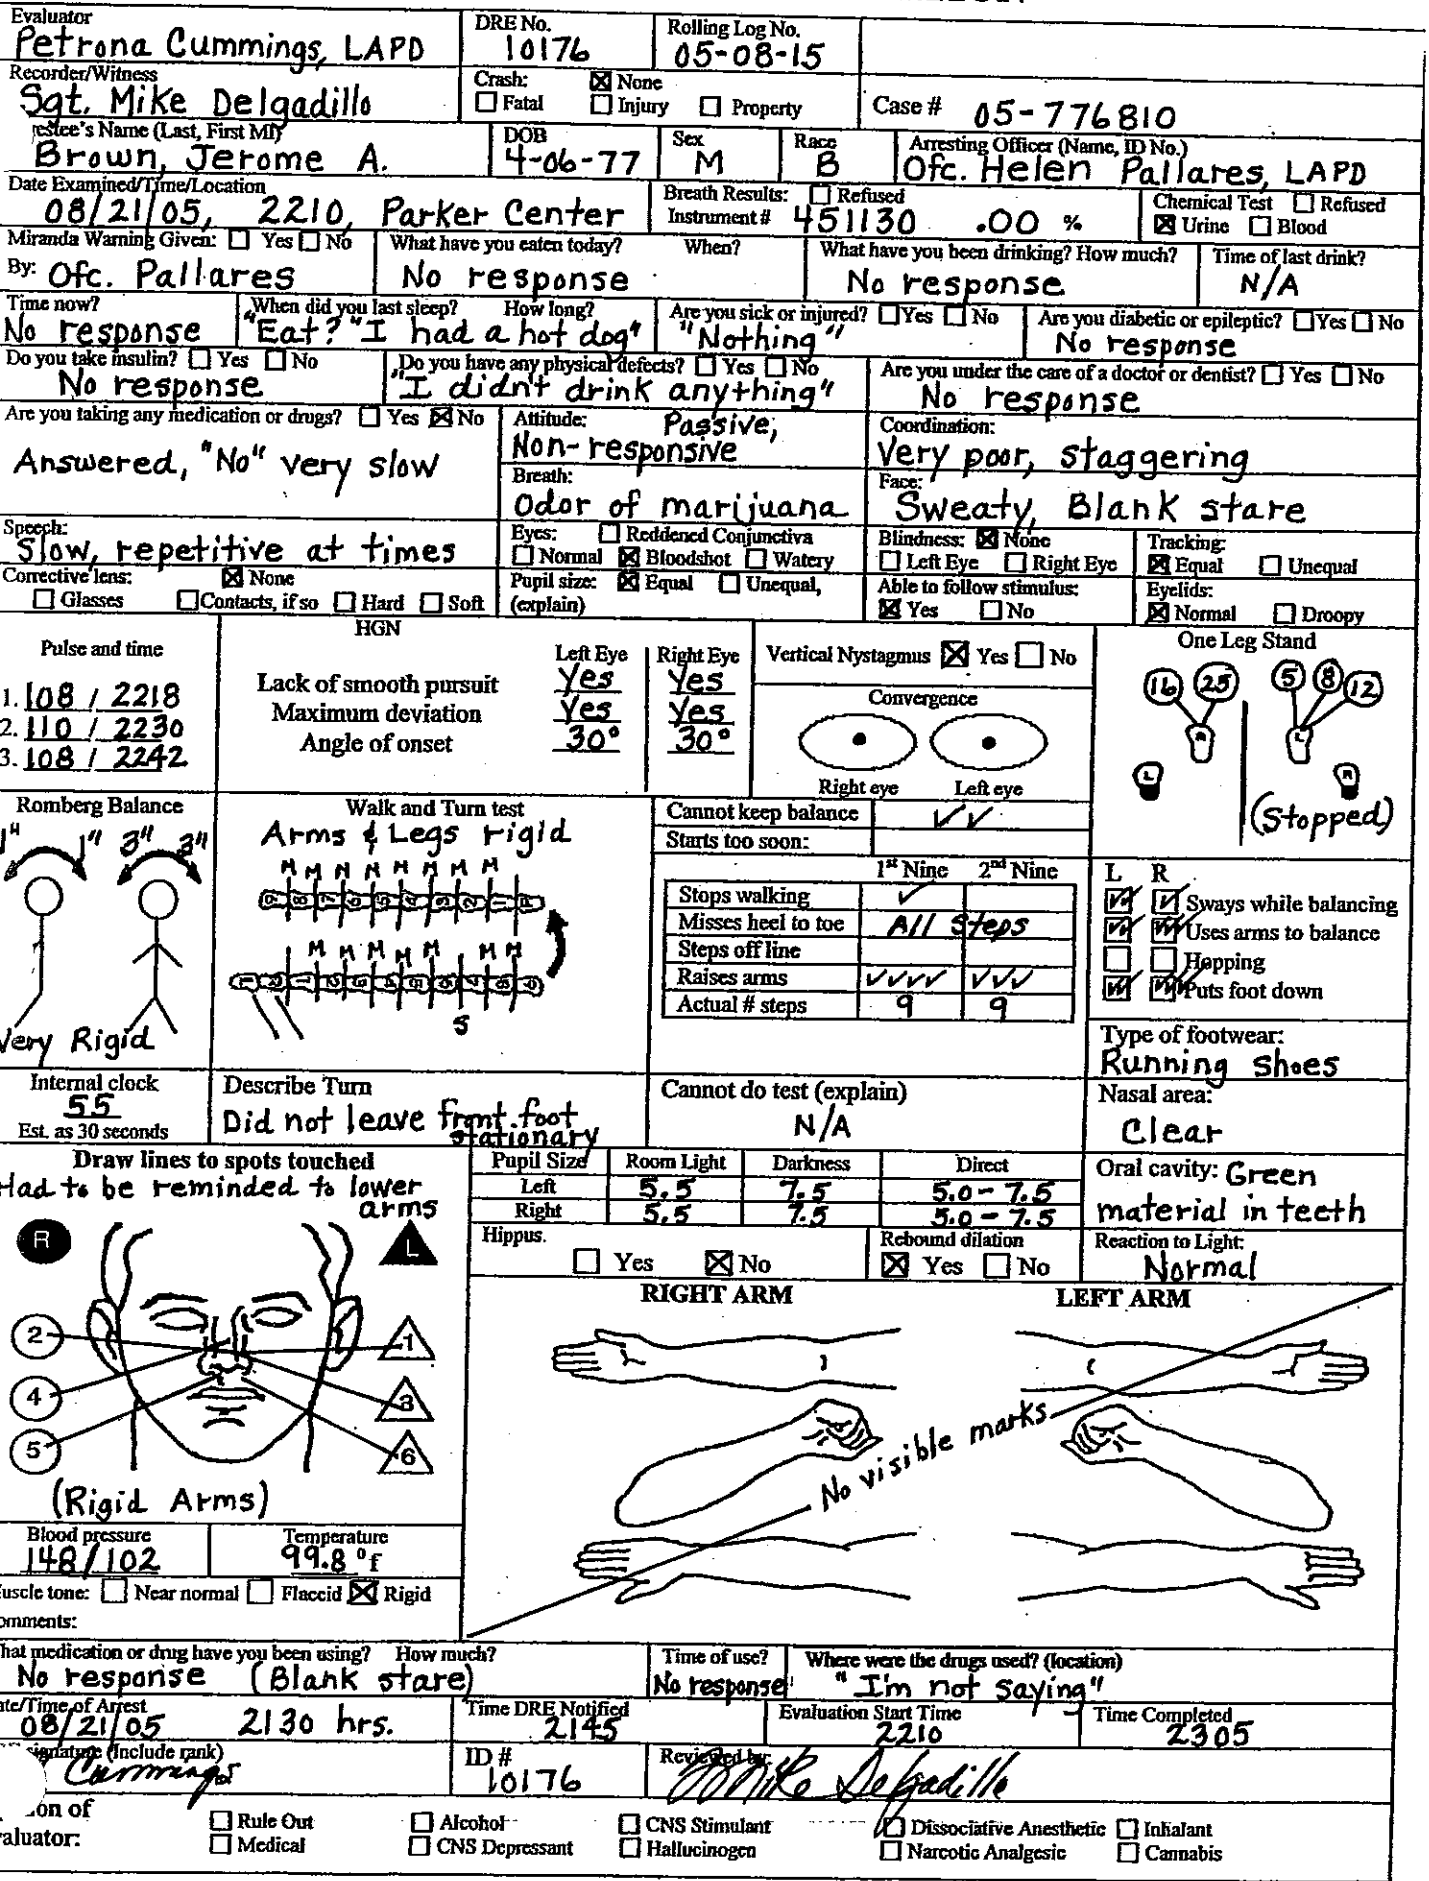 Evaluator
Petrona Cummings, LAPD
DRE No.
10176
Rolling Log No.
05-08-15
Recorder/Witness
Sgt. Mike Delgadillo
Crash: ☒ None
☐ Fatal ☐ Injury ☐ Property
Case # 05-776810
restee's Name (Last, First MI)
Brown, Jerome A.
DOB
4-06-77
Sex
M
Race
B
Arresting Officer (Name, ID No.)
Ofc. Helen Pallares, LAPD
Date Examined/Time/Location
08/21/05, 2210, Parker Center
Breath Results: ☐ Refused
Instrument # 451130 .00 %
Chemical Test ☐ Refused
☒ Urine ☐ Blood
Miranda Warning Given: ☐ Yes ☐ No
By: Ofc. Pallares
What have you eaten today? When?
No response
What have you been drinking? How much?
No response
Time of last drink?
N/A
Time now?
No response
When did you last sleep? How long?
"Eat? "I had a hot dog"
Are you sick or injured? ☐ Yes ☐ No
"Nothing"
Are you diabetic or epileptic? ☐ Yes ☐ No
No response
Do you take insulin? ☐ Yes ☐ No
No response
Do you have any physical defects? ☐ Yes ☐ No
"I didn't drink anything"
Are you under the care of a doctor or dentist? ☐ Yes ☐ No
No response
Are you taking any medication or drugs? ☐ Yes ☒ No
Answered, "No" very slow
Attitude: Passive,
Non-responsive
Coordination:
Very poor, staggering
Breath:
Odor of marijuana
Face:
Sweaty, Blank stare
Speech:
Slow, repetitive at times
Eyes: ☐ Reddened Conjunctiva
☐ Normal ☒ Bloodshot ☐ Watery
Blindness: ☒ None
☐ Left Eye ☐ Right Eye
Tracking:
☒ Equal ☐ Unequal
Corrective lens: ☒ None
☐ Glasses ☐ Contacts, if so ☐ Hard ☐ Soft
Pupil size: ☒ Equal ☐ Unequal,
(explain)
Able to follow stimulus:
☒ Yes ☐ No
Eyelids:
☒ Normal ☐ Droopy
Pulse and time
1. 108 / 2218
2. 110 / 2230
3. 108 / 2242
HGN
Left Eye Right Eye
Lack of smooth pursuit Yes Yes
Maximum deviation Yes Yes
Angle of onset 30° 30°
Vertical Nystagmus ☒ Yes ☐ No
Convergence
Right eye Left eye
One Leg Stand
16 25 5 8 12
R L
L R
(Stopped)
Romberg Balance
1" 1" 3" 3"
Very Rigid
Walk and Turn test
Arms & Legs rigid
M M M M M M M M
M M M M M M M
S
Cannot keep balance ✓✓
Starts too soon:
1st Nine 2nd Nine
Stops walking ✓
Misses heel to toe All Steps
Steps off line
Raises arms ✓✓✓✓ ✓✓✓
Actual # steps 9 9
L R
Sways while balancing
Uses arms to balance
☐ ☐ Hopping
Puts foot down
Type of footwear:
Running shoes
Internal clock
55
Est. as 30 seconds
Describe Turn
Did not leave front foot
stationary
Cannot do test (explain)
N/A
Nasal area:
Clear
Draw lines to spots touched
Had to be reminded to lower
arms
R L
2 1
4 3
5 6
(Rigid Arms)
Pupil Size Room Light Darkness Direct
Left 5.5 7.5 5.0 - 7.5
Right 5.5 7.5 5.0 - 7.5
Oral cavity: Green
material in teeth
Hippus.
☐ Yes ☒ No
Rebound dilation
☒ Yes ☐ No
Reaction to Light:
Normal
RIGHT ARM LEFT ARM
No visible marks
Blood pressure
148/102
Temperature
99.8 °f
uscle tone: ☐ Near normal ☐ Flaccid ☒ Rigid
omments:
hat medication or drug have you been using? How much?
No response (Blank stare)
Time of use?
No response
Where were the drugs used? (location)
"I'm not saying"
ate/Time of Arrest
08/21/05 2130 hrs.
Time DRE Notified
2145
Evaluation Start Time
2210
Time Completed
2305
signature (Include rank)
Cummings
ID #
10176
Reviewed by:
Mike Delgadillo
on of
valuator:
☐ Rule Out ☐ Alcohol ☐ CNS Stimulant ☐ Dissociative Anesthetic ☐ Inhalant
☐ Medical ☐ CNS Depressant ☐ Hallucinogen ☐ Narcotic Analgesic ☐ Cannabis